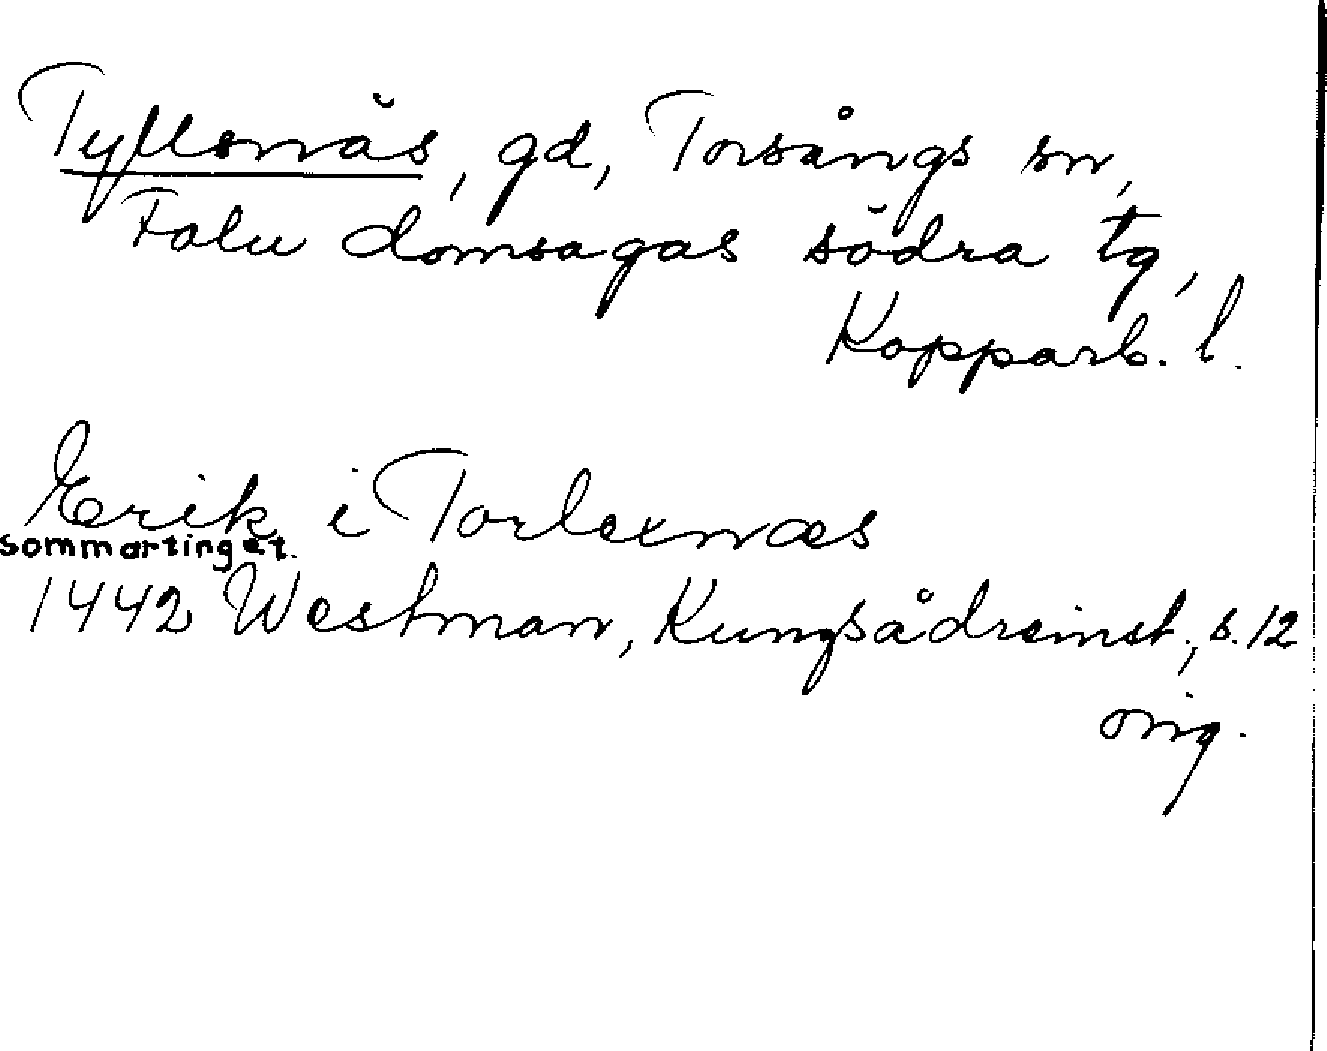 Tyllsnäs, gd, Torsångs sn,
Falu domsagas södra tg,
Kopparb. l.
Erik i Torlexnæs
sommartinget.
1442 Westman, Kungsådreinst., s. 12
orig.